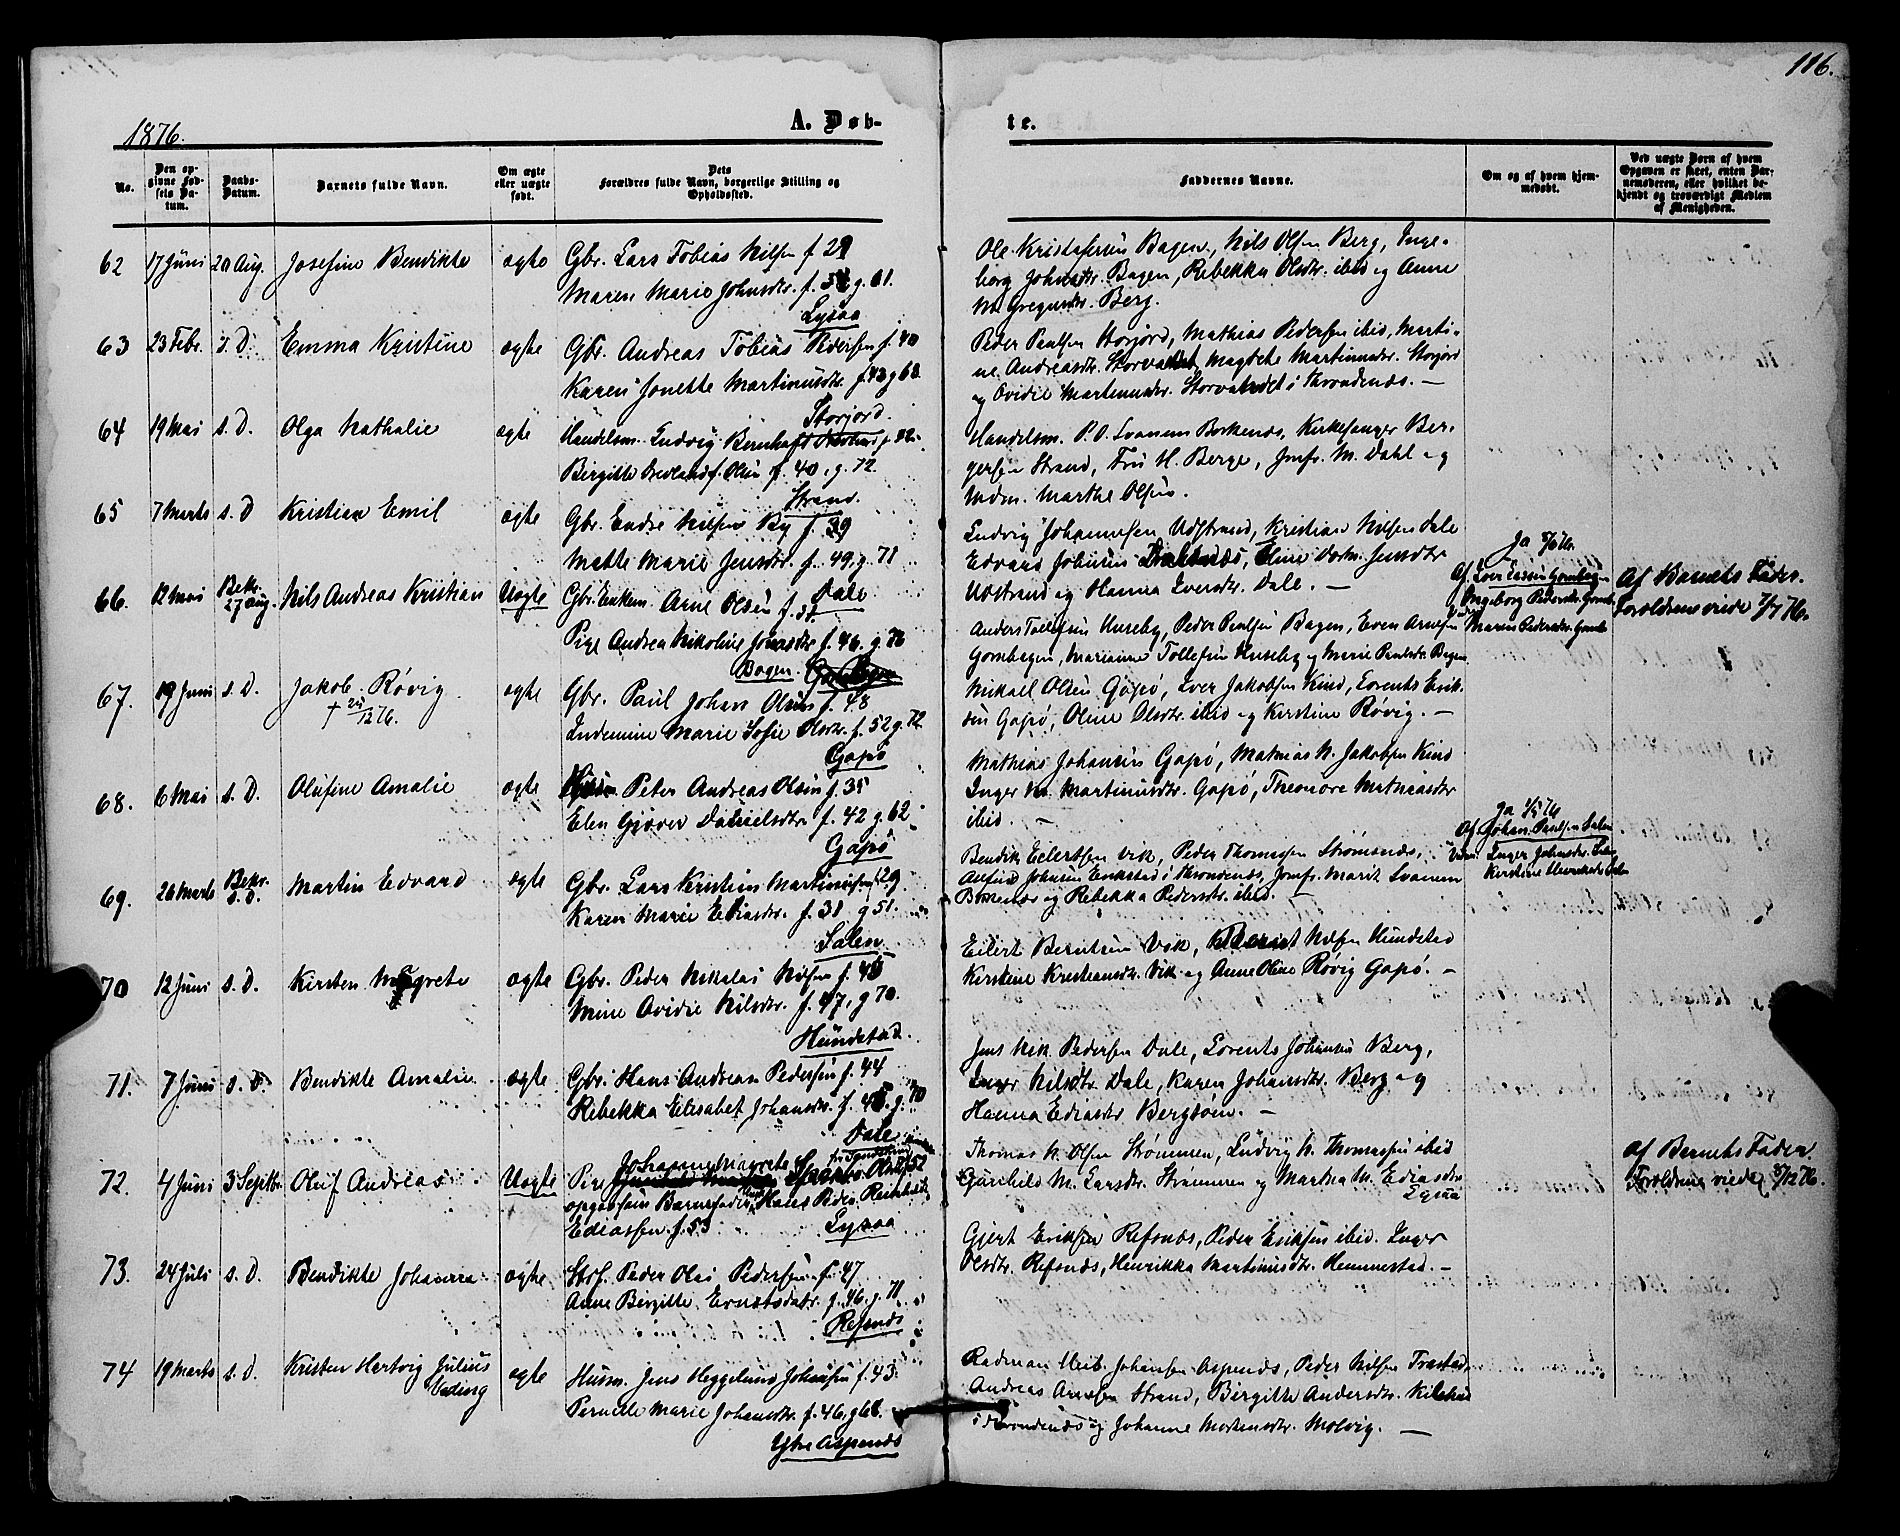 116.
1876.
A. Døb-
te.
No.
Den op-
givne Fød-
sels Da-
tum.
Daabs-
Datum.
Barnets fulde Navn.
Om ægte
eller uægte
født.
Dets
Forældres fulde Navn, borgerlige Stilling og
Opholdssted.
Faddernes Navne.
Om og af hvem hjem-
medøbt.
Ved uægte Børn af hvem
Opgaven er skeet, enten Bar-
nemoderen, eller hvilket be-
kjendt og troværdigt Medlem
af Menigheden.
62 17 Juni 20 Aug. Josefine Bendikte ægte Gbr. Lars Tobias Nilsen f 29
Maren Marie Johnsdtr. f. 54 g. 61.
Lysaa
Ole Kristofersen Bagen, Nils Olsen Berg, Inge-
borg Johnsdtr. Bagen, Rebekka Olsdtr. ibid og Anne
M. Gregersdtr. Berg.
63 23 Febr. s. D. Emma Kristine ægte Gbr. Andreas Tobias Pedersen f. 40
Karen Jonette Martinusdtr. f. 43 g 68.
Storjord.
Peder Paulsen Storjord, Mathias Pedersen ibid, Marti-
ne Andreasdtr. Storvatnet, Magdele Martinusdtr. Storjord
og Ovidie Martinusdtr. Storvatnet i Throndenæs. —
64 19 Mai s. D. Olga Nathalie ægte Handelsm. Ludvig Bernhoft f. 32.
Birgitte f. Olsen f. 40, g. 72.
Strand.
Handelsm. P. O. Svanem Borkenæs, Kirkesanger Ber-
gersen Strand, Fru H. Berge, Jmfr. M. Dahl og
Mdm. Marthe Olsen.
65 7 Marts s. D Kristian Emil ægte Gbr. Endre Nilsen By f. 39
Mette Marie Jensdtr. f. 49, g. 71
Dale
Ludvig Johannesen Udstrand, Kristian Nilsen Dale
Edvard Johnsen, Oline Dort. Jensdtr
Udstrand og Hanna Iversdtr. Dale. —
66. 12 Mai Bekr. 27 Aug. Nils Andreas Kristian Uægte Gbr. Enkem. Arne Olsen f. 32
Pige Andrea Nikoline Jonasdtr f. 46. g. 76
Bogen.
Anders Tollefsen Huseby, Peder Paulsen Bagen, Even Arnesen
Gombogen, Marianne Tollefsen Huseby og Marie Paulsdtr. Bagen
Ja 8/6 76.
Af Iver Gombogen
Ingeborg Pedersdtr. Gomb.
Maren Pedersdtr. Gomb.
Af Barnets Fader.
Foreldrene viede 7/7 76.
67. 19 Juni s. D. Jakob Røvig ægte Gbr. Paul Johan Olsen f. 48
† 25/12 76.
Indemine Marie Sofie Olsdtr. f. 52 g. 72
Gapø
Mikael Olsen Gapø, Iver Jakobsen Kind, Lorents Erik-
sen Gapø, Oline Olsdtr. ibid og Kirstine Røvig. —
68. 6 Mai s. D. Olufine Amalie ægte Peter Andreas Olsen f. 35
Elen Gjøver Danielsdtr f. 42 g. 62
Gapø
Mathias Johansen Gapø, Mathias N. Jakobsen Kind
Inger M. Martinusdtr. Gapø, Theonore Mathiasdtr
ibid. —
69. 26 Marts Bekr. s. D. Martin Edvard ægte Gbr. Lars Kristian Martinusen f 29
Karen Marie Ediasdtr. f. 31 g 51.
Salen
Bendik Eilertsen Vik, Peder Thomassen Strømsnæs,
Johnsen Erikstad i Throndenæs, Jomfr. Marit Svanem
Borkenæs og Rebekka Pedersdtr. ibid. —
Ja 1/4 76
Af Johan Paulsen Salen
Vidn. Inger Johnsdtr. Salen
Kirstine Henriksdtr Salen
70 12 Juni s. D. Kirsten Margrete ægte Gbr. Peder Nikolai Nilsen f. 45
Mine Ovidie Nilsdtr. f. 47, g 70.
Hundstad.
Eilert Berntsen Vik, Bernt Nilsen Hundstad
Kirstine Kristiansdtr. Vik og Anne Oline Røvig Gapø. —
71. 7 Juni s. D. Bendikte Amalie ægte Gbr. Hans Andreas Pedersen f. 44
Rebekka Elisabet Johansdtr. f. 45. g. 70
Dale
Jens Nik. Pedersen Dale, Lorents Johansen Berg,
Inger Nilsdtr. Dale, Karen Johansdtr. Berg og
Hanna Ediasdtr Bergsøen. —
72. 4 Juni 3 Septbr. Oluf Andreas Uægte Pige Johanna Margrete Olsdtr f 52
opgav som Barnefader Hans Peder Reinholdt
Ediassen f. 53
Lysaa
Thomas N. Olsen Strømmen, Ludvig N. Thomassen ibid
Gunhild M. Larsdtr. Strømmen og Martha M. Ediasdtr
Lysaa
Af Barnets Fader.
Foreldrene viede 8/12 76.
73. 24 Juli s. D. Bendikte Johanna ægte Strf. Peder Olai Pedersen f. 47
Anne Birgitte Erntsdatr. f. 46. g. 71
Refsnæs
Gjert Eriksen Refsnæs, Peder Eriksen ibid. Inger
Olsdtr. Refsnæs, Henrikka Martinusdtr. Hemmestad. —
74 19 Marts s. D. Kristen Hertvig Julius
Nading ægte Husm. Jens Heggelund Johansen f. 43
Pernelle Marie Johansdtr. f. 46, g 68.
Ytre Aspenæs
Radman Meib. Johansen Aspenæs, Peder Nilsen Trastad,
Andreas Arnesen Strand, Birgitte Andersdtr. Kilebu
i Throndenæs og Johanne Mortensdtr. Molvig. —